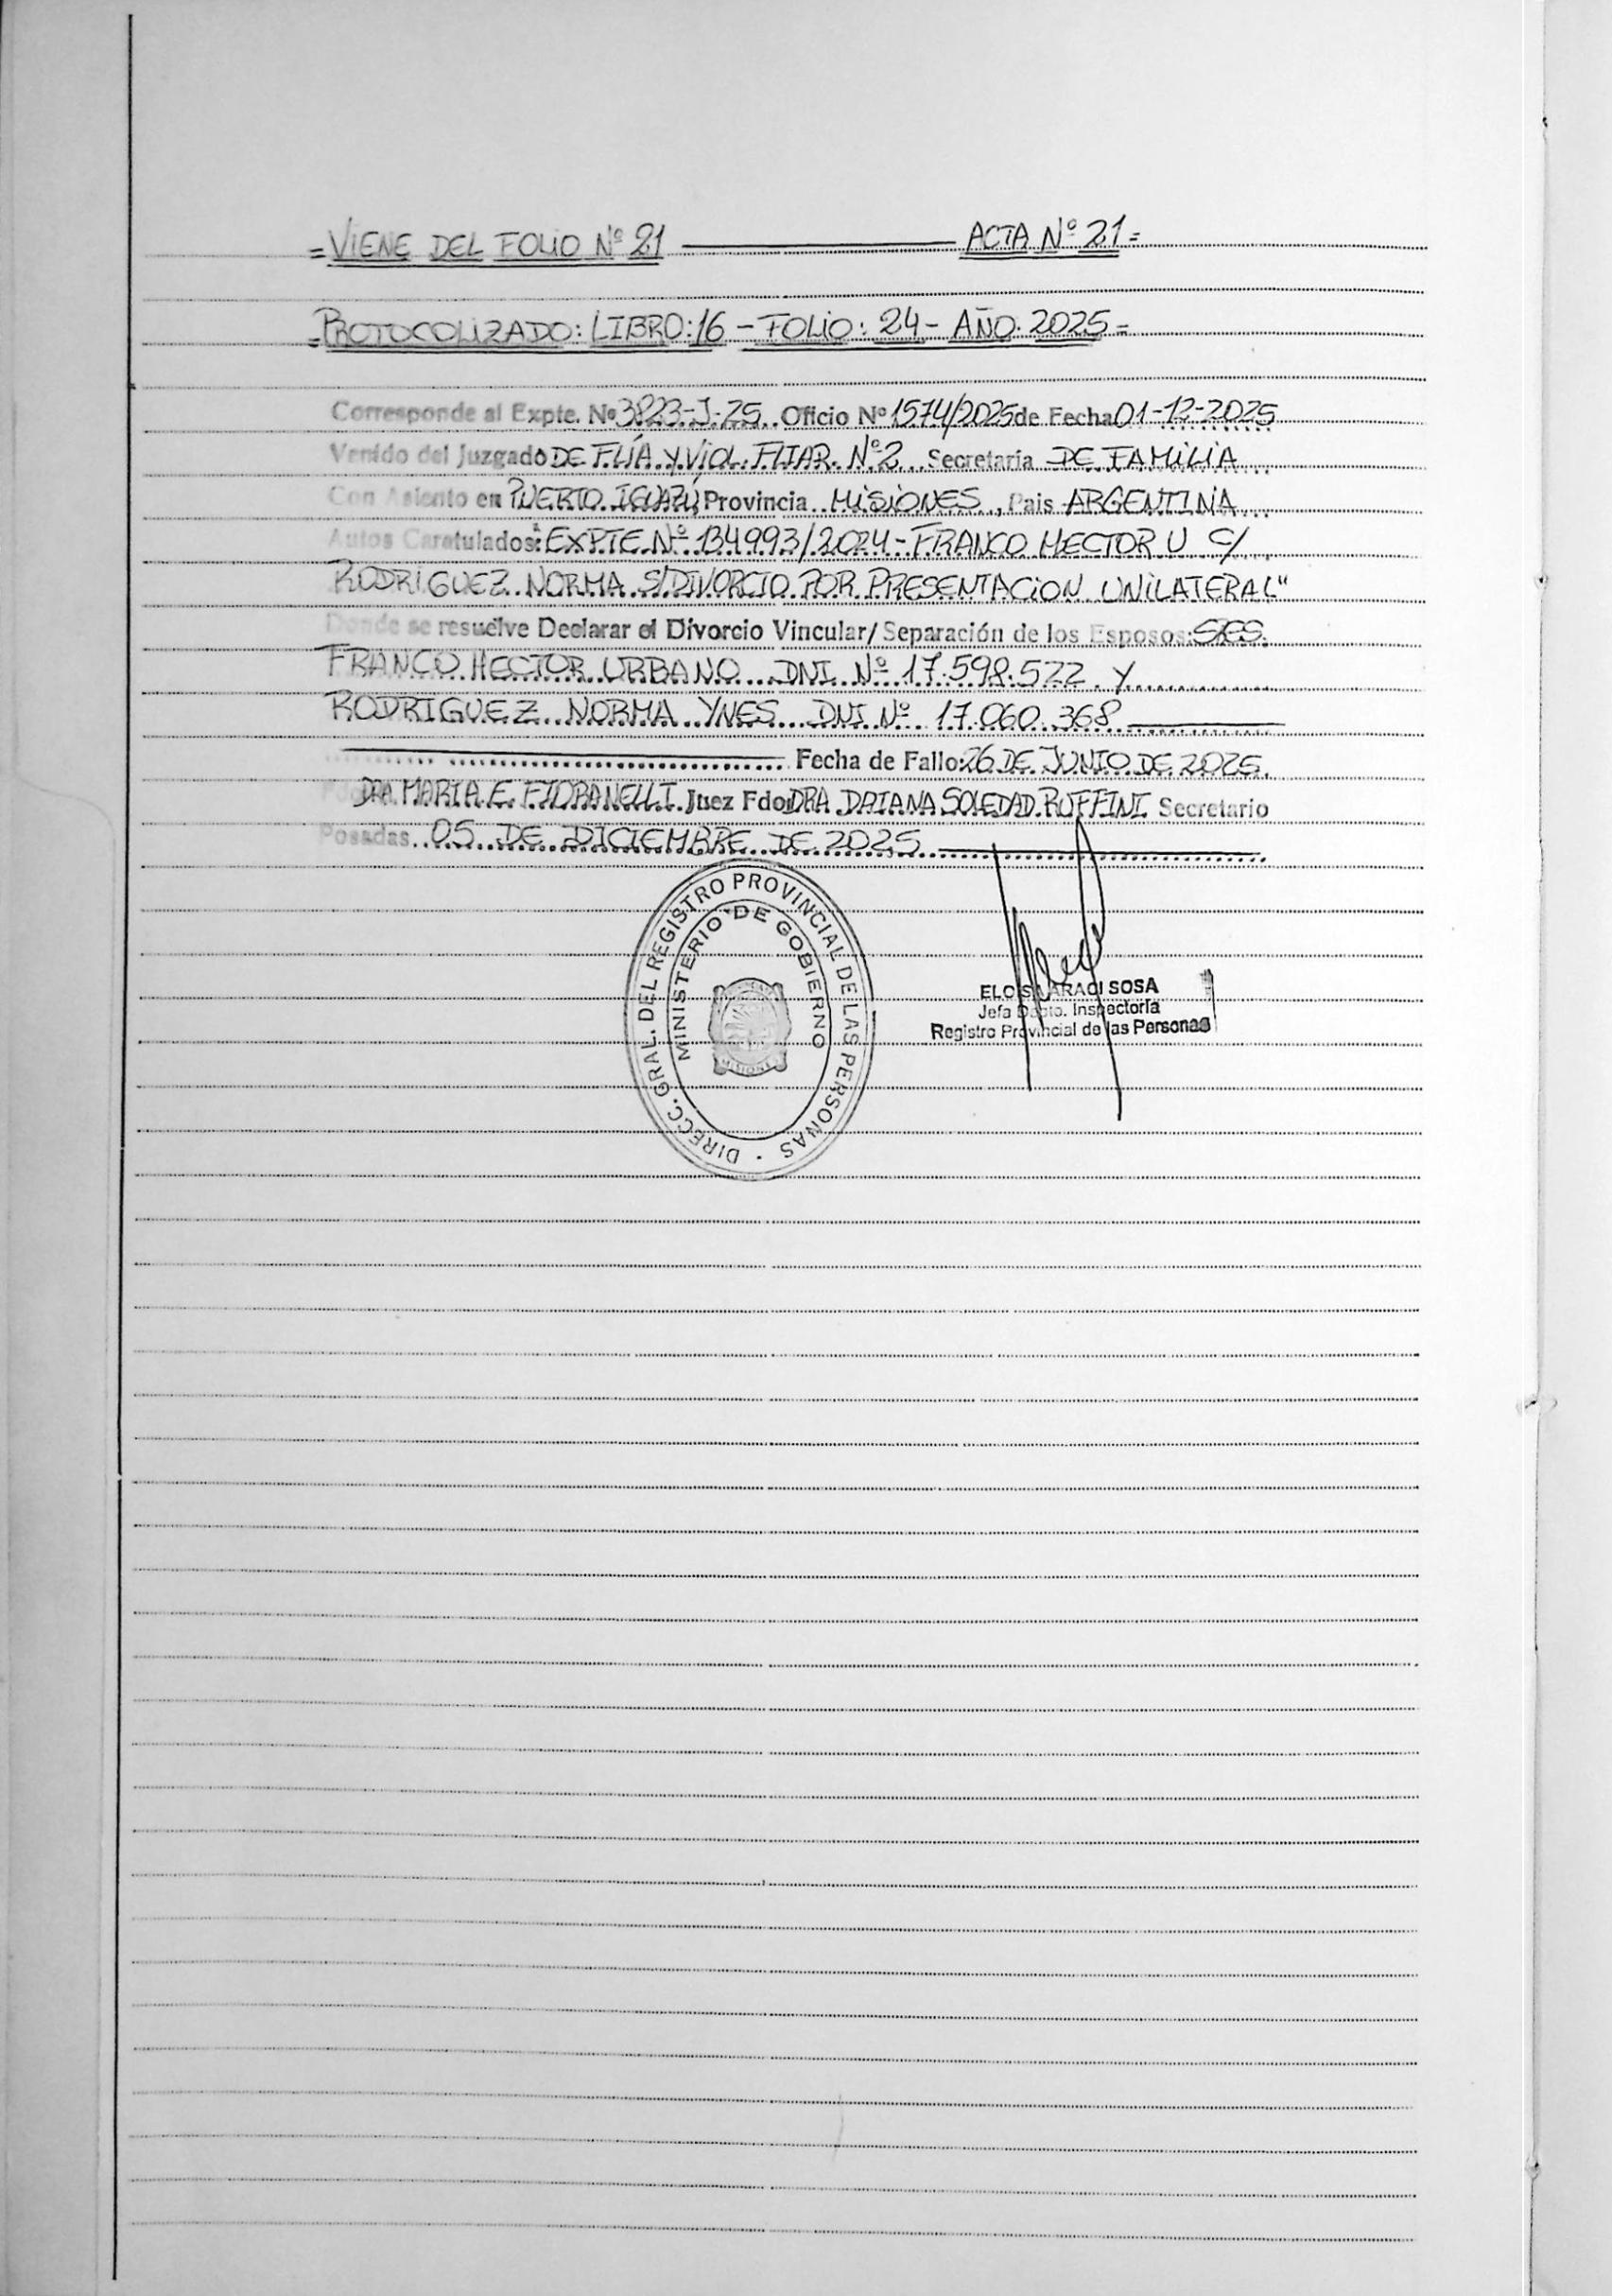 =VIENE DEL FOLIO Nº 21 ACTA Nº 21=
=PROTOCOLIZADO: LIBRO: 16 - FOLIO: 24 - AÑO: 2025=
Corresponde al Expte. Nº 3823-J-25 Oficio Nº 1574/2025 de Fecha 01-12-2025
Venido del Juzgado DE FLIA Y VIOL. FLIAR. Nº 2 Secretaría DE FAMILIA
Con Asiento en PUERTO IGUAZÚ, Provincia MISIONES, Pais ARGENTINA
Autos Caratulados: "EXPTE Nº 134993/2024 - FRANCO HECTOR U C/
RODRIGUEZ NORMA S/DIVORCIO POR PRESENTACION UNILATERAL"
Donde se resuelve Declarar el Divorcio Vincular/Separación de los Esposos: SRES.
FRANCO HECTOR URBANO DNI Nº 17.598.522 Y
RODRIGUEZ NORMA YNES DNI Nº 17.060.368
Fecha de Fallo: 26 DE JUNIO DE 2025.
DRA MARIA E. FIORANELLI Juez Fdo: DRA DAIANA SOLEDAD RUFFINI Secretario
Posadas, 05 DE DICIEMBRE DE 2025
DIRECC. GRAL. DEL REGISTRO PROVINCIAL DE LAS PERSONAS
MINISTERIO DE GOBIERNO
MISIONES
ELOISA ARACI SOSA
Jefa Dpto. Inspectoría
Registro Provincial de las Personas